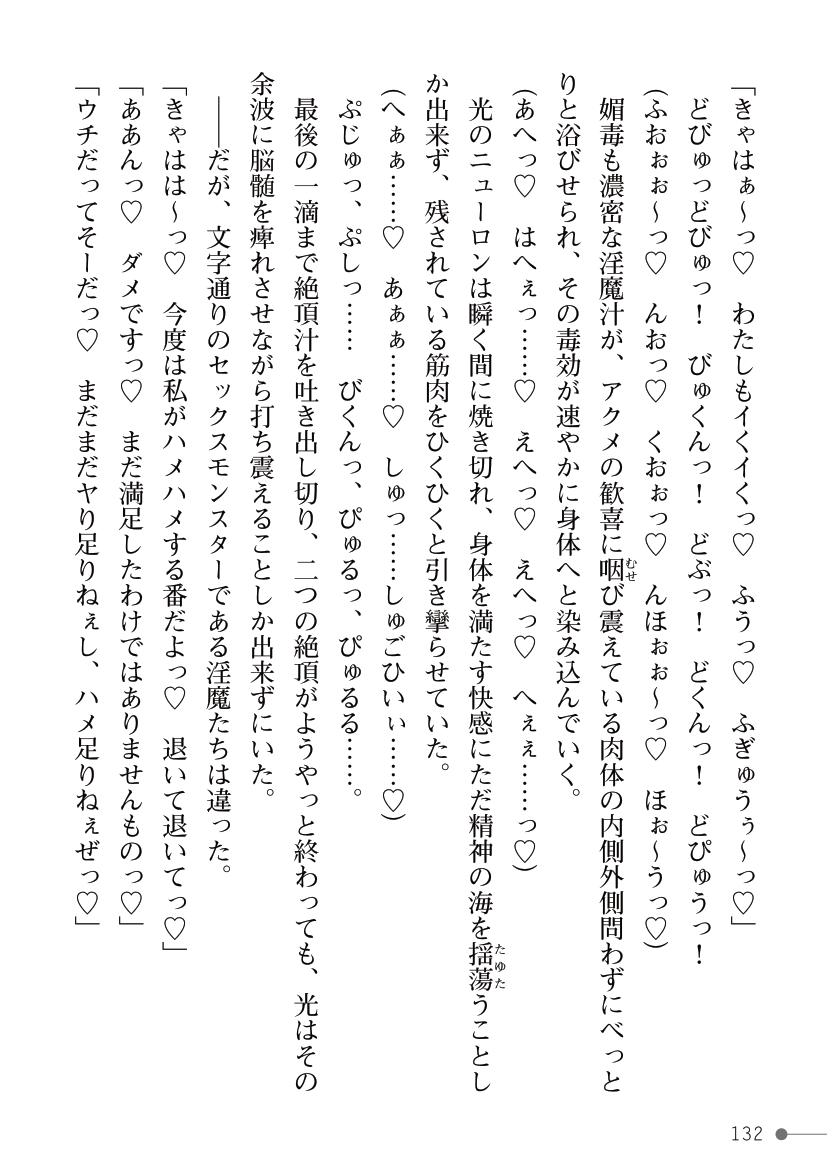 「きゃはぁ～っ♡　わたしもイくイくっ♡　ふうっ♡　ふぎゅうぅ～っ♡」
どびゅっどびゅっ！　びゅくんっ！　どぶっ！　どくんっ！　どぴゅうっ！
(ふおぉぉ～っ♡　んおっ♡　くおぉっ♡　んほぉぉ～っ♡　ほぉ～うっ♡)
媚毒も濃密な淫魔汁が、アクメの歓喜に咽び震えている肉体の内側外側問わずにべっと
りと浴びせられ、その毒効が速やかに身体へと染み込んでいく。
(あへっ♡　はへぇっ……♡　えへっ♡　えへっ♡　へぇぇ……っ♡)
光のニューロンは瞬く間に焼き切れ、身体を満たす快感にただ精神の海を揺蕩うことし
か出来ず、残されている筋肉をひくひくと引き攣らせていた。
(へぁぁ……♡　あぁぁ……♡　しゅっ……しゅごひいぃ……♡)
ぷじゅっ、ぷしっ……　びくんっ、ぴゅるっ、ぴゅるる……。
最後の一滴まで絶頂汁を吐き出し切り、二つの絶頂がようやっと終わっても、光はその
余波に脳髄を痺れさせながら打ち震えることしか出来ずにいた。
――だが、文字通りのセックスモンスターである淫魔たちは違った。
「きゃはは～っ♡　今度は私がハメハメする番だよっ♡　退いて退いてっ♡」
「ああんっ♡　ダメですっ♡　まだ満足したわけではありませんものっ♡」
「ウチだってそーだっ♡　まだまだヤり足りねぇし、ハメ足りねぇぜっ♡」
むせ
たゆた
132